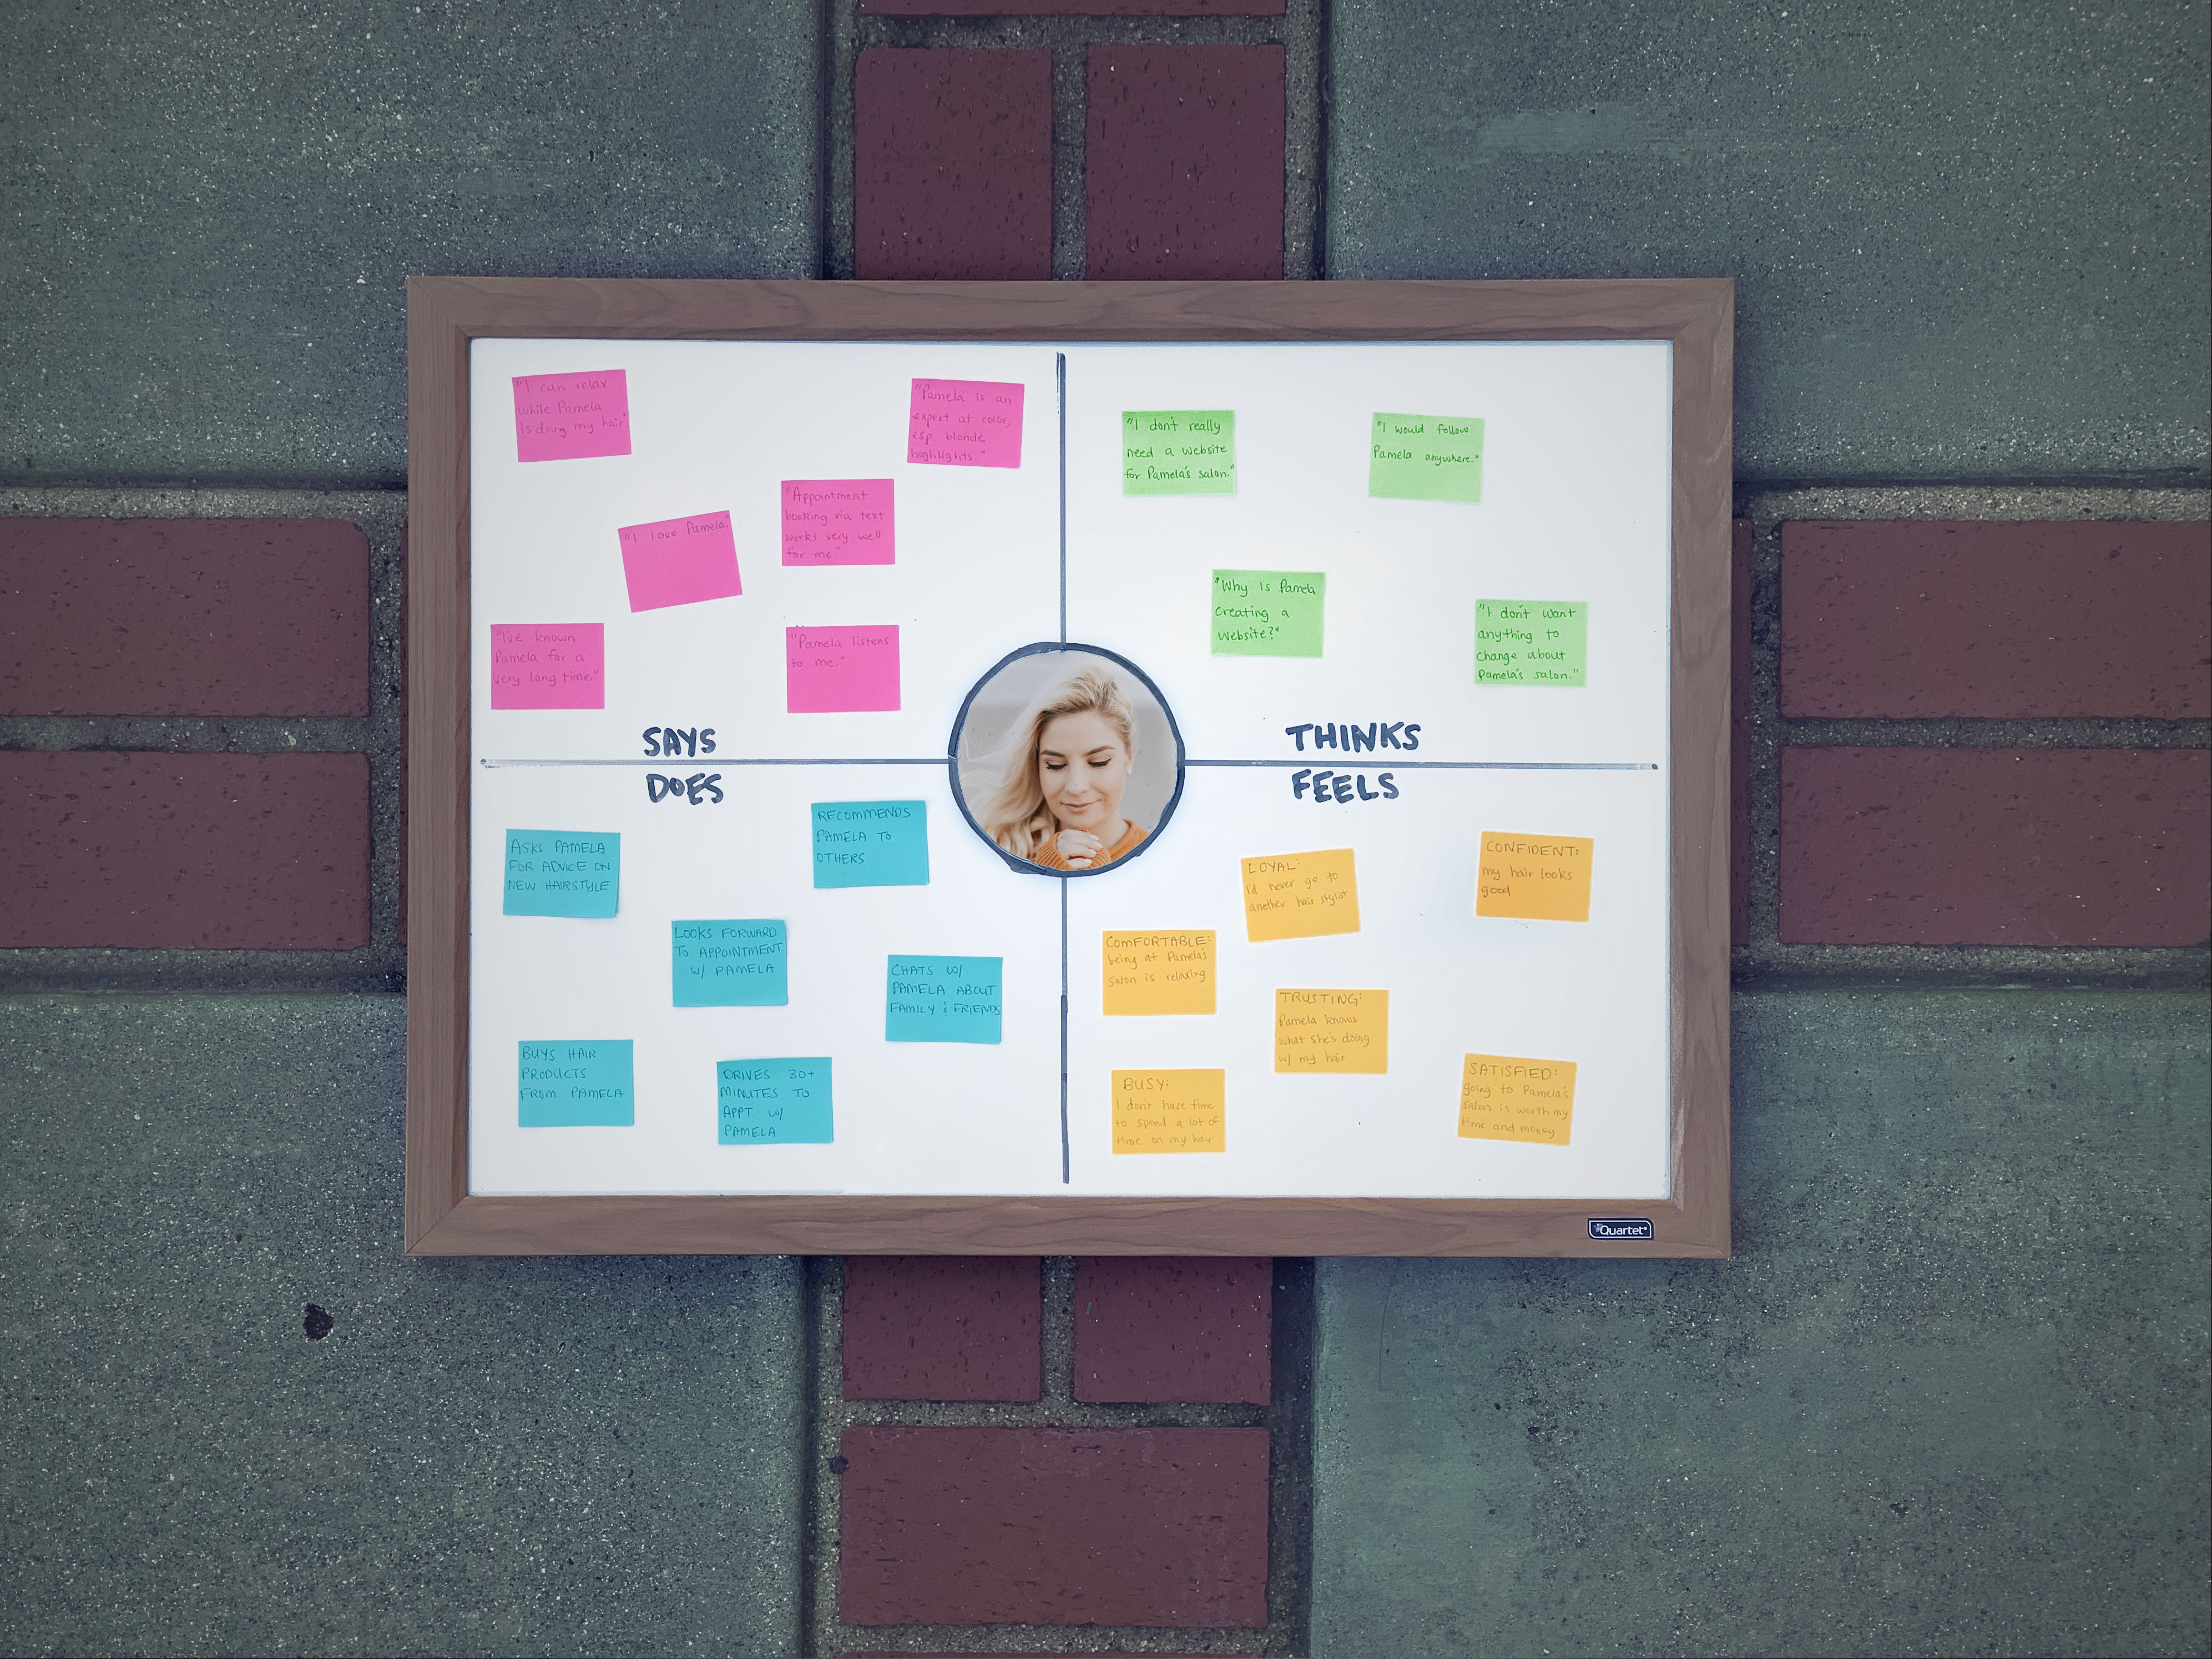 "I can relax
while Pamela
is doing my hair"
"Pamela is an
expert at color,
esp. blonde
highlights."
"Appointment
booking via text
works very well
for me."
"I love Pamela."
"I've known
Pamela for a
very long time."
"Pamela listens
to me."
SAYS
"I don't really
need a website
for Pamela's salon."
"I would follow
Pamela anywhere."
"Why is Pamela
creating a
website?"
"I don't want
anything to
change about
Pamela's salon."
THINKS
DOES
RECOMMENDS
PAMELA TO
OTHERS
ASKS PAMELA
FOR ADVICE ON
NEW HAIRSTYLE
LOOKS FORWARD
TO APPOINTMENT
W/ PAMELA
CHATS W/
PAMELA ABOUT
FAMILY & FRIENDS
BUYS HAIR
PRODUCTS
FROM PAMELA
DRIVES 30+
MINUTES TO
APPT. W/
PAMELA
FEELS
LOYAL:
I'd never go to
another hair stylist
CONFIDENT:
my hair looks
good
COMFORTABLE:
being at Pamela's
salon is relaxing
TRUSTING:
Pamela knows
what she's doing
w/ my hair
BUSY:
I don't have time
to spend a lot of
time on my hair
SATISFIED:
going to Pamela's
salon is worth my
time and money
Quartet